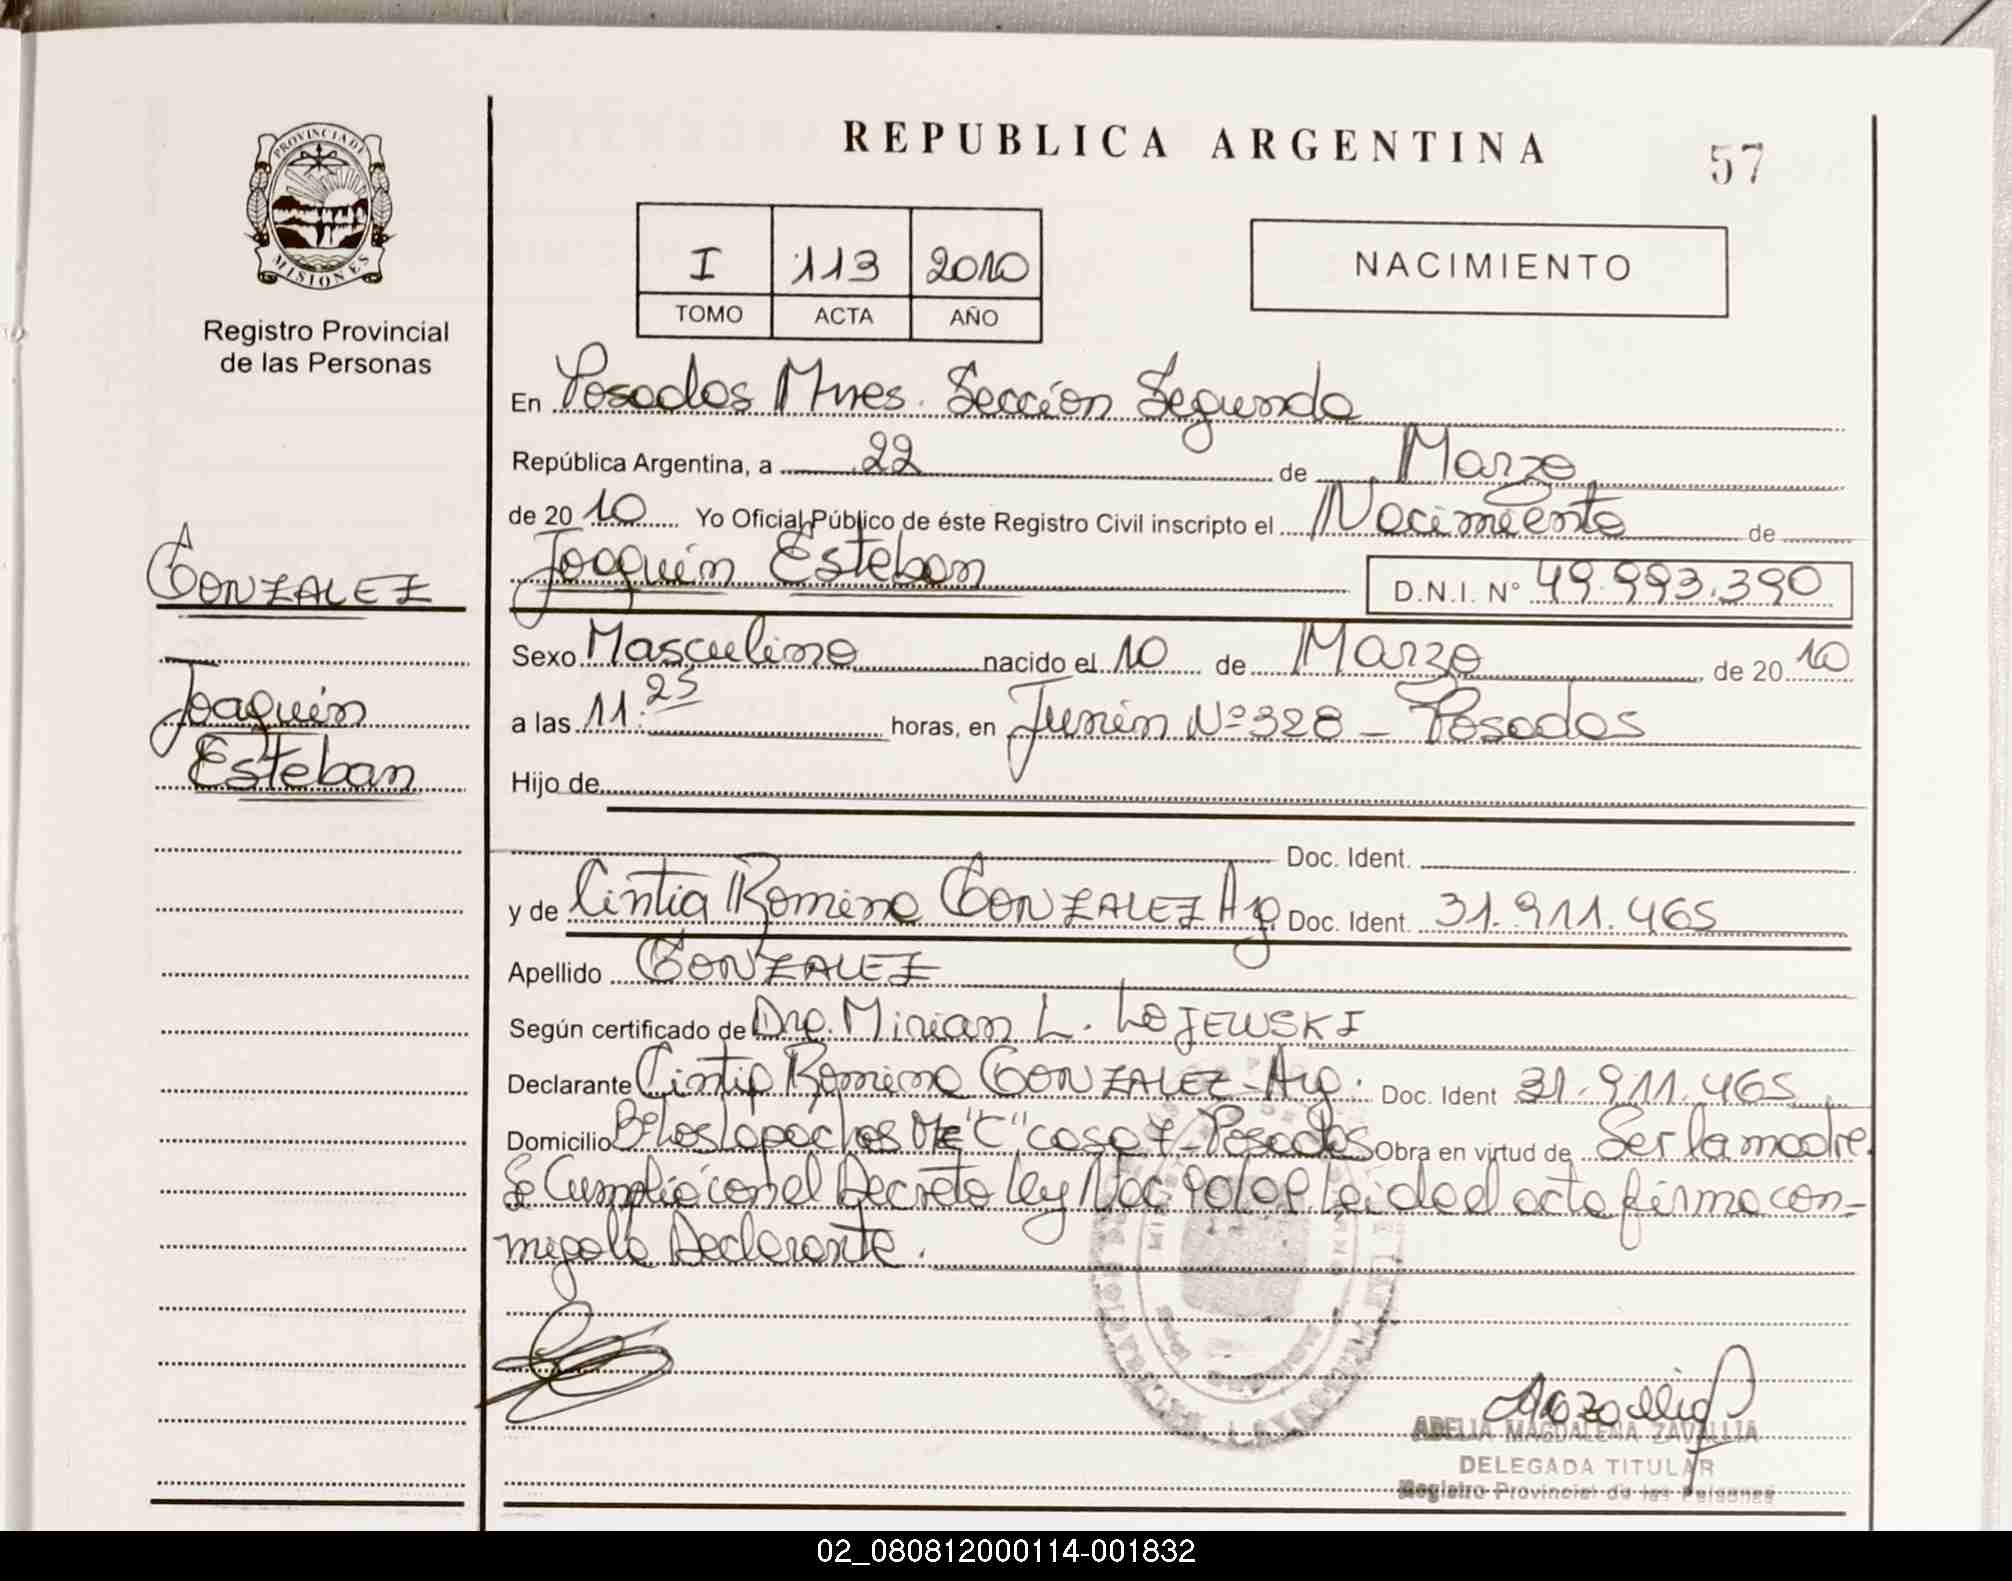 REPUBLICA ARGENTINA
57
PROVINCIA DE
MISIONES
Registro Provincial
de las Personas
I 113 2010
TOMO ACTA AÑO
NACIMIENTO
En Posadas Mnes. Sección Segunda
República Argentina, a 22 de Marzo
de 2010 Yo Oficial Público de éste Registro Civil inscripto el Nacimiento de
Joaquín Esteban D.N.I. Nº 49.993.390
GONZALEZ
Joaquín
Esteban
Sexo Masculino nacido el 10 de Marzo de 2010
a las 11:25 horas, en Junín Nº 328 - Posadas
Hijo de
Doc. Ident.
y de Cintia Romina GONZALEZ Arg. Doc. Ident. 31.911.465
Apellido GONZALEZ
Según certificado de Dra. Mirian L. LOJEWSKI
Declarante Cintia Romina GONZALEZ - Arg. Doc. Ident 31.911.465
Domicilio Bº Los Lapachos Mz "C" casa 7 - Posadas Obra en virtud de Ser la madre.
Se Cumplió con el Decreto Ley Nac Leída el acta firma con-
migo la Declarante.
ADELIA MAGDALENA ZAVALLIA
DELEGADA TITULAR
Registro Provincial de las Personas
02_080812000114-001832